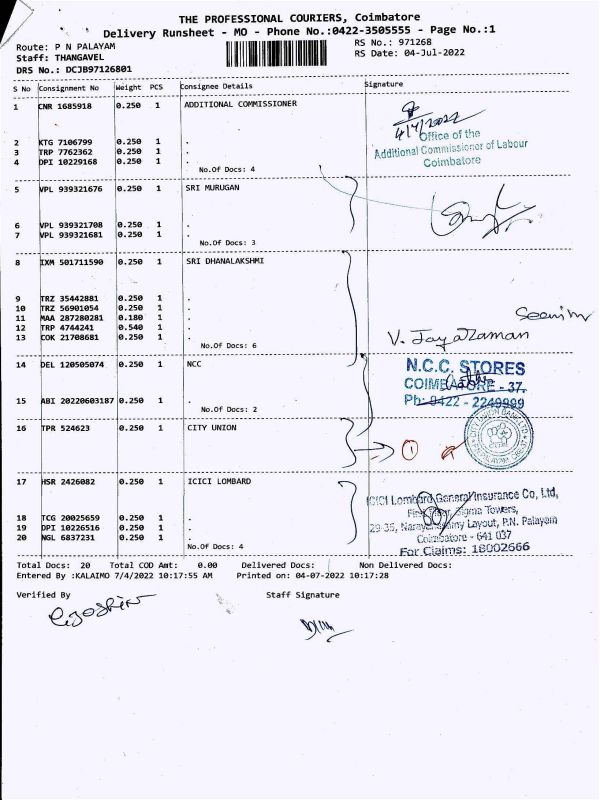 THE PROFESSIONAL COURIERS, Coimbatore
Delivery Runsheet - MO - Phone No.:0422-3505555 - Page No.:1
Route: P N PALAYAM
RS No.: 971268
Staff: THANGAVEL
RS Date: 04-Jul-2022
DRS No.: DCJB97126801
S No Consignment No Weight PCS Consignee Details Signature
1 CNR 1685918 0.250 1 ADDITIONAL COMMISSIONER
4/7/2022
2 KTG 7106799 0.250 1 .
Office of the
3 TRP 7762362 0.250 1 .
Additional Commissioner of Labour
4 DPI 10229168 0.250 1 .
Coimbatore
No.Of Docs: 4
5 VPL 939321676 0.250 1 SRI MURUGAN
6 VPL 939321708 0.250 1 .
7 VPL 939321681 0.250 1 .
No.Of Docs: 3
8 IXM 501711590 0.250 1 SRI DHANALAKSHMI
9 TRZ 35442881 0.250 1 .
10 TRZ 56901054 0.250 1 .
11 MAA 287280281 0.180 1 .
12 TRP 4744241 0.540 1 .
13 COK 21708681 0.250 1 .
V. Jayaraman
No.Of Docs: 6
14 DEL 120505074 0.250 1 NCC
N.C.C. STORES
COIMBATORE - 37.
Ph: 0422 - 2249999
15 ABI 20220603187 0.250 1 .
No.Of Docs: 2
16 TPR 524623 0.250 1 CITY UNION
1
17 HSR 2426082 0.250 1 ICICI LOMBARD
ICICI Lombard General Insurance Co, Ltd,
First Floor, Sigma Towers,
18 TCG 20025659 0.250 1 .
29-35, Narayanasamy Layout, P.N. Palayam
19 DPI 10226516 0.250 1 .
Coimbatore - 641 037
20 NGL 6837231 0.250 1 .
For Claims: 18002666
No.Of Docs: 4
Total Docs: 20 Total COD Amt: 0.00 Delivered Docs: Non Delivered Docs:
Entered By :KALAIMO 7/4/2022 10:17:55 AM Printed on: 04-07-2022 10:17:28
Verified By Staff Signature